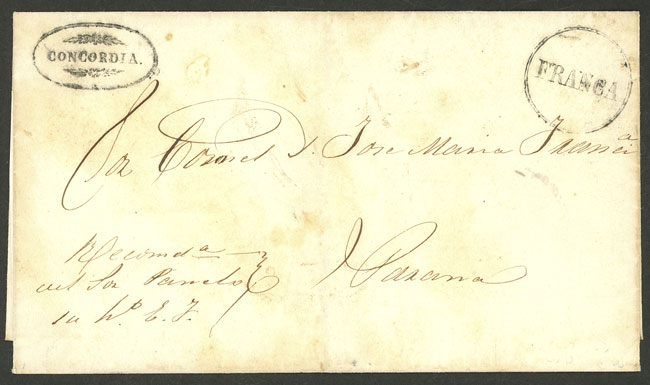 CONCORDIA.
FRANCA
Sor Coronel D. Jose Maria Francia
Parana
Recomda
del Sor
su ho. E. F.